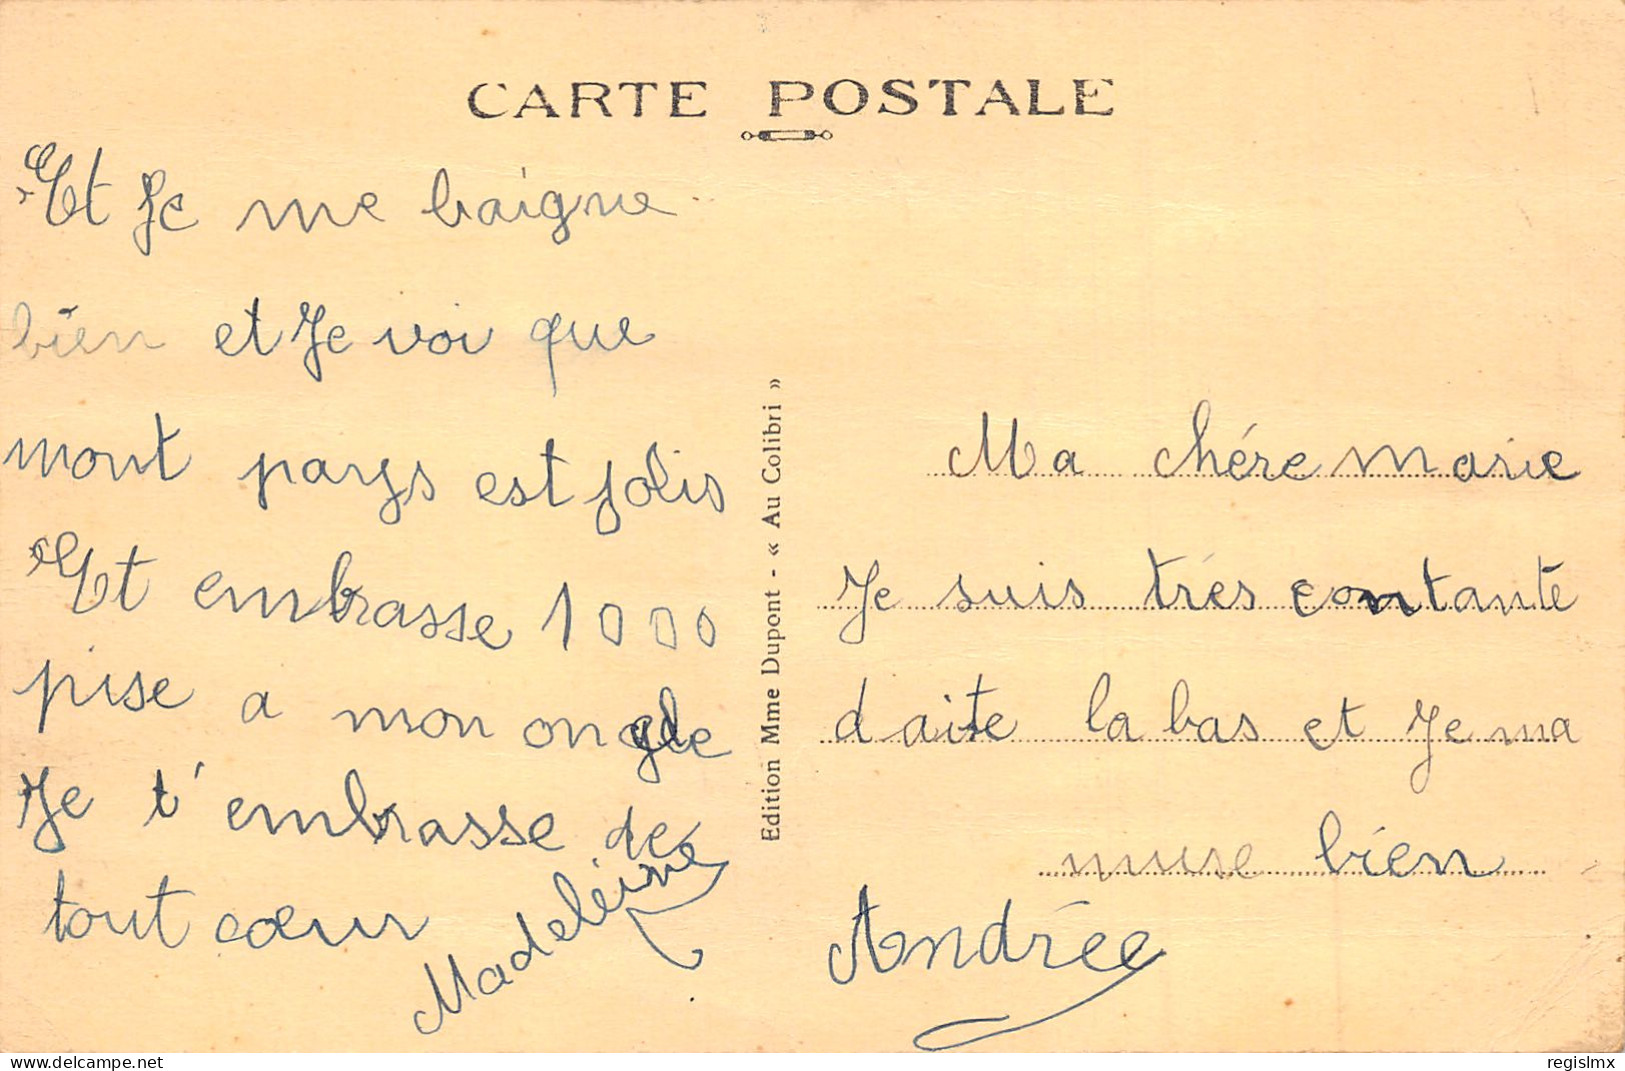 CARTE POSTALE
Et Je me baigne
bien et Je voi que
mont pays est jolis
Et embrasse 1000
pise a mon ongle
Je t'embrasse de
tout cœur
Madeléine
Edition Mme Dupont - « Au Colibri »
Ma chére marie
Je suis trés contante
d aite la bas et Je ma
muse bien
Andrée
delcampe.net
regislmx